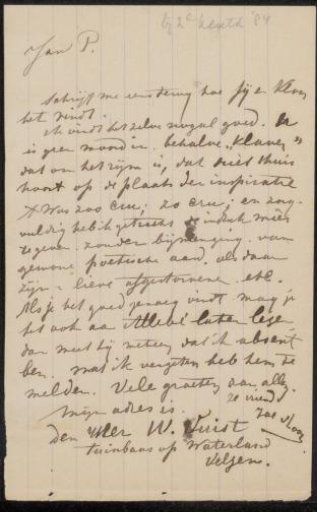 Jan P.
Schrijf me eens terug hoe jij en Kloos
het vindt.
ik vindt het zelve nogal goed. Er
is geen woord in, behalve „Klaver"
dat om het rijm is, dat niet thuis
hoort op de plaats der inspiratie
't was zoo en zoo en zorg-
vuldig heb ik getracht indruk
te geven zonder bijmenging van
gewone poëtische aard, als daar
zijn: lieve afgestorvene etc.
Als je het goed genoeg vindt mag je
het ook aan laten lezen
dan weet hij meteen dat ik absent
ben. wat ik vergeten heb hem te
melden. Vele groeten aan allen
je vriend
Mijn adres is.
den Heer W. Vuist
tuinbaas op Waterland
Velzen.